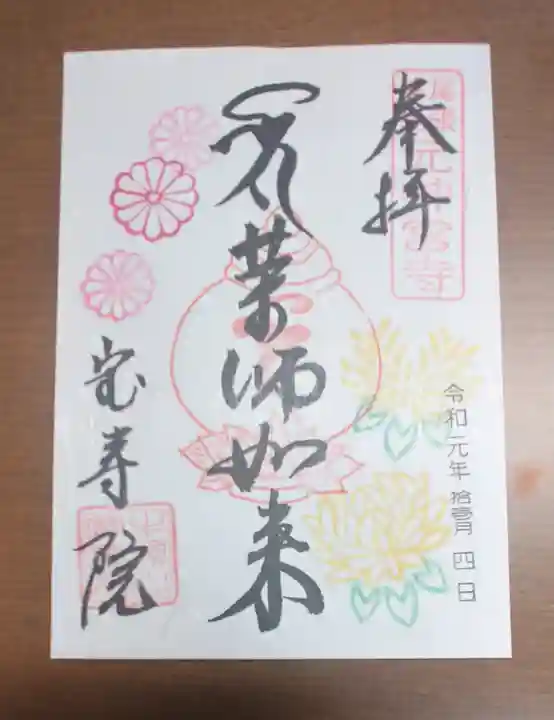 奉拝
薬師如来
令和元年 拾壱月 四日
宝寿院